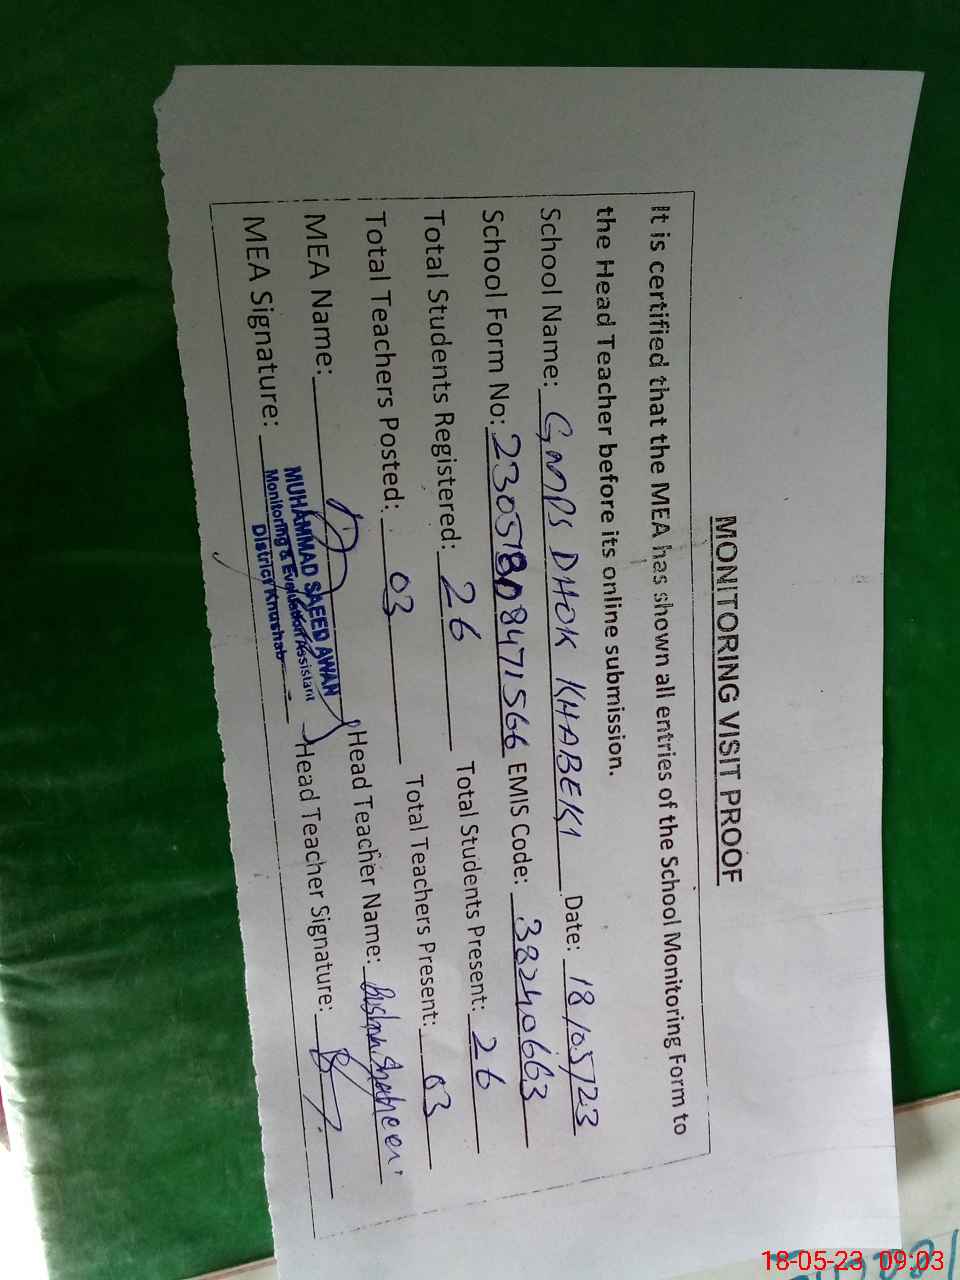 MONITORING VISIT PROOF
It is certified that the MEA has shown all entries of the School Monitoring Form to
the Head Teacher before its online submission.
School Name: GMPS DHOK KHABEKI Date: 18/05/23
School Form No: 23051808471566 EMIS Code: 38240663
Total Students Registered: 26 Total Students Present: 26
Total Teachers Posted: 03 Total Teachers Present: 03
MEA Name: Head Teacher Name: Bushra Shaheen
MEA Signature: Head Teacher Signature:
MUHAMMAD SAEED AWAN
Monitoring & Evaluation Assistant
District Khushab
18-05-23 09:03